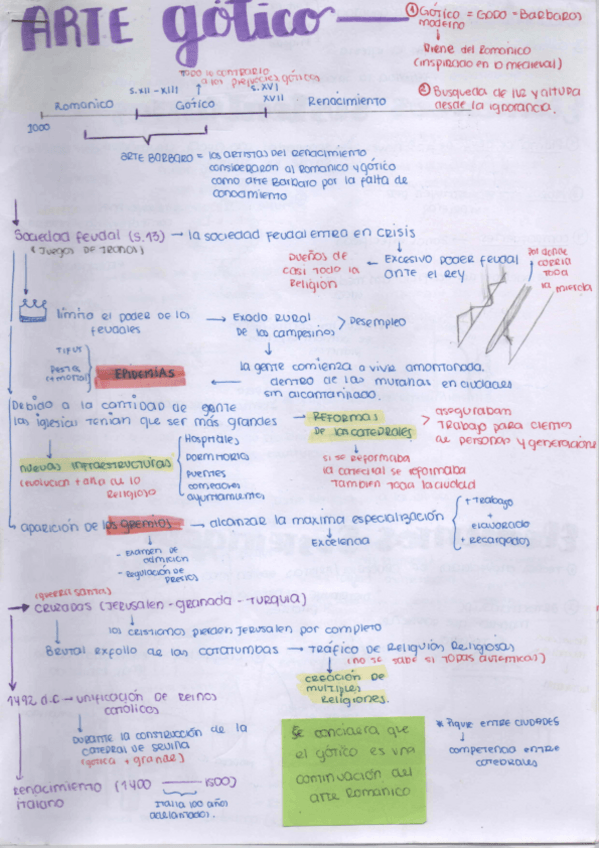 ARTE gótico
① Gótico = GODO = Barbaros
moderno
Viene del Románico
(inspirado en lo medieval)
② Busqueda de luz y altura
desde la ignorancia.
TODO lo contrario
a los prejuicios góticos
S.XII - XIII
S. XVI
XVII
Romanico
Gotico
Renacimiento
1000
ARTE BARBARO = los artistas del Renacimiento
consideraron al Romanico y gótico
como arte Barbaro por la falta de
conocimiento
Sociedad feudal (s.13) → la sociedad feudal entra en crisis
(Juegos de Tronos)
Excesivo poder feudal
ante el rey
Dueños de
casi todo la
Religion
Por donde
corria
toda
la mierda
limita el poder de los
feudales
→ Exodo rural
de los campesinos
> Desempleo
la gente comienza a vivir amontonada.
dentro de las murallas en ciudades
sin alcantarillado.
TIFUS
Peste
(+ mortal)
EPIDEMIAS
Debido a la cantidad de gente
las iglesias tenian que ser más grandes
→ REFORMAS
DE LAS CATEDRALES
aseguraban
> Trabajo para cientos
de personas y generaciones
si se reformaba
la catedral se reformaba
tambien toda la ciudad
nuevas infraestructuras
(evolucion + alla de lo
Religioso)
Hospitales
Dormitorios
puentes
comedores
ayuntamientos
aparición de los gremios → alcanzar la maxima especialización
+ Trabajo
+ elaborado
+ Recargados
Excelencia
- Examen de
admicion
- Regulación de
precios
(guerra santa)
→ Cruzadas (Jerusalen - Granada - Turquia)
los cristianos pierden Jerusalen por completo
Brutal expolio de las catatumbas → Tráfico de Reliquias Religiosas
(no se sabe si todas autenticas)
creación de
multiples
Religiones.
1492 d.C - unificación de Reinos
católicos
Durante la construcción de la
catedral de sevilla
(gótica + grande)
Renacimiento (1400 — 1500)
italiano
Italia 100 años
adelantados.
Se concidera que
el gótico es una
continuación del
arte Romanico
* Pique entre ciudades
competencia entre
catedrales